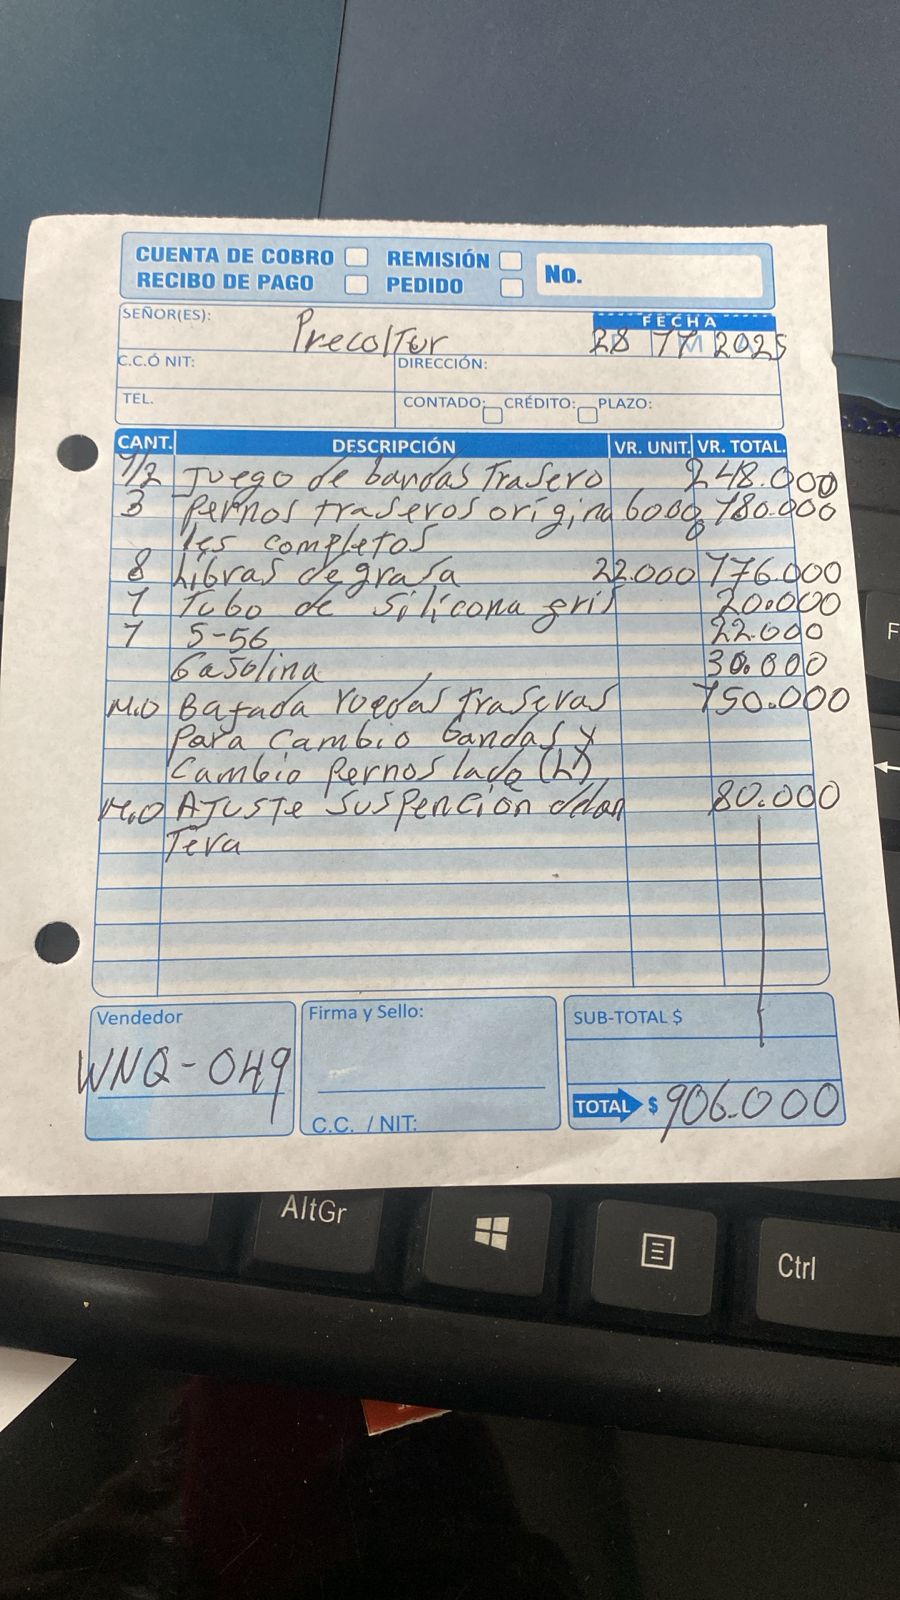 CUENTA DE COBRO REMISIÓN No.
RECIBO DE PAGO PEDIDO
SEÑOR(ES): Precoltur FECHA
28 11 2025
C.C.Ó NIT: DIRECCIÓN:
TEL. CONTADO: CRÉDITO: PLAZO:
CANT. DESCRIPCIÓN VR. UNIT. VR. TOTAL.
1/2 Juego de bandas Trasero 248.000
3 Pernos traseros origina 60000 180.000
les completos
8 Libras de grasa 22.000 176.000
1 Tubo de silicona gris 20.000
1 5-56 22.000
Gasolina 30.000
M.O Bajada ruedas traseras 150.000
Para cambio bandas y
Cambio Pernos lado (L)
M.O Ajuste suspención delan 80.000
Tera
Vendedor Firma y Sello: SUB-TOTAL $
WNQ-049
C.C. / NIT: TOTAL $ 906.000
AltGr Ctrl
F